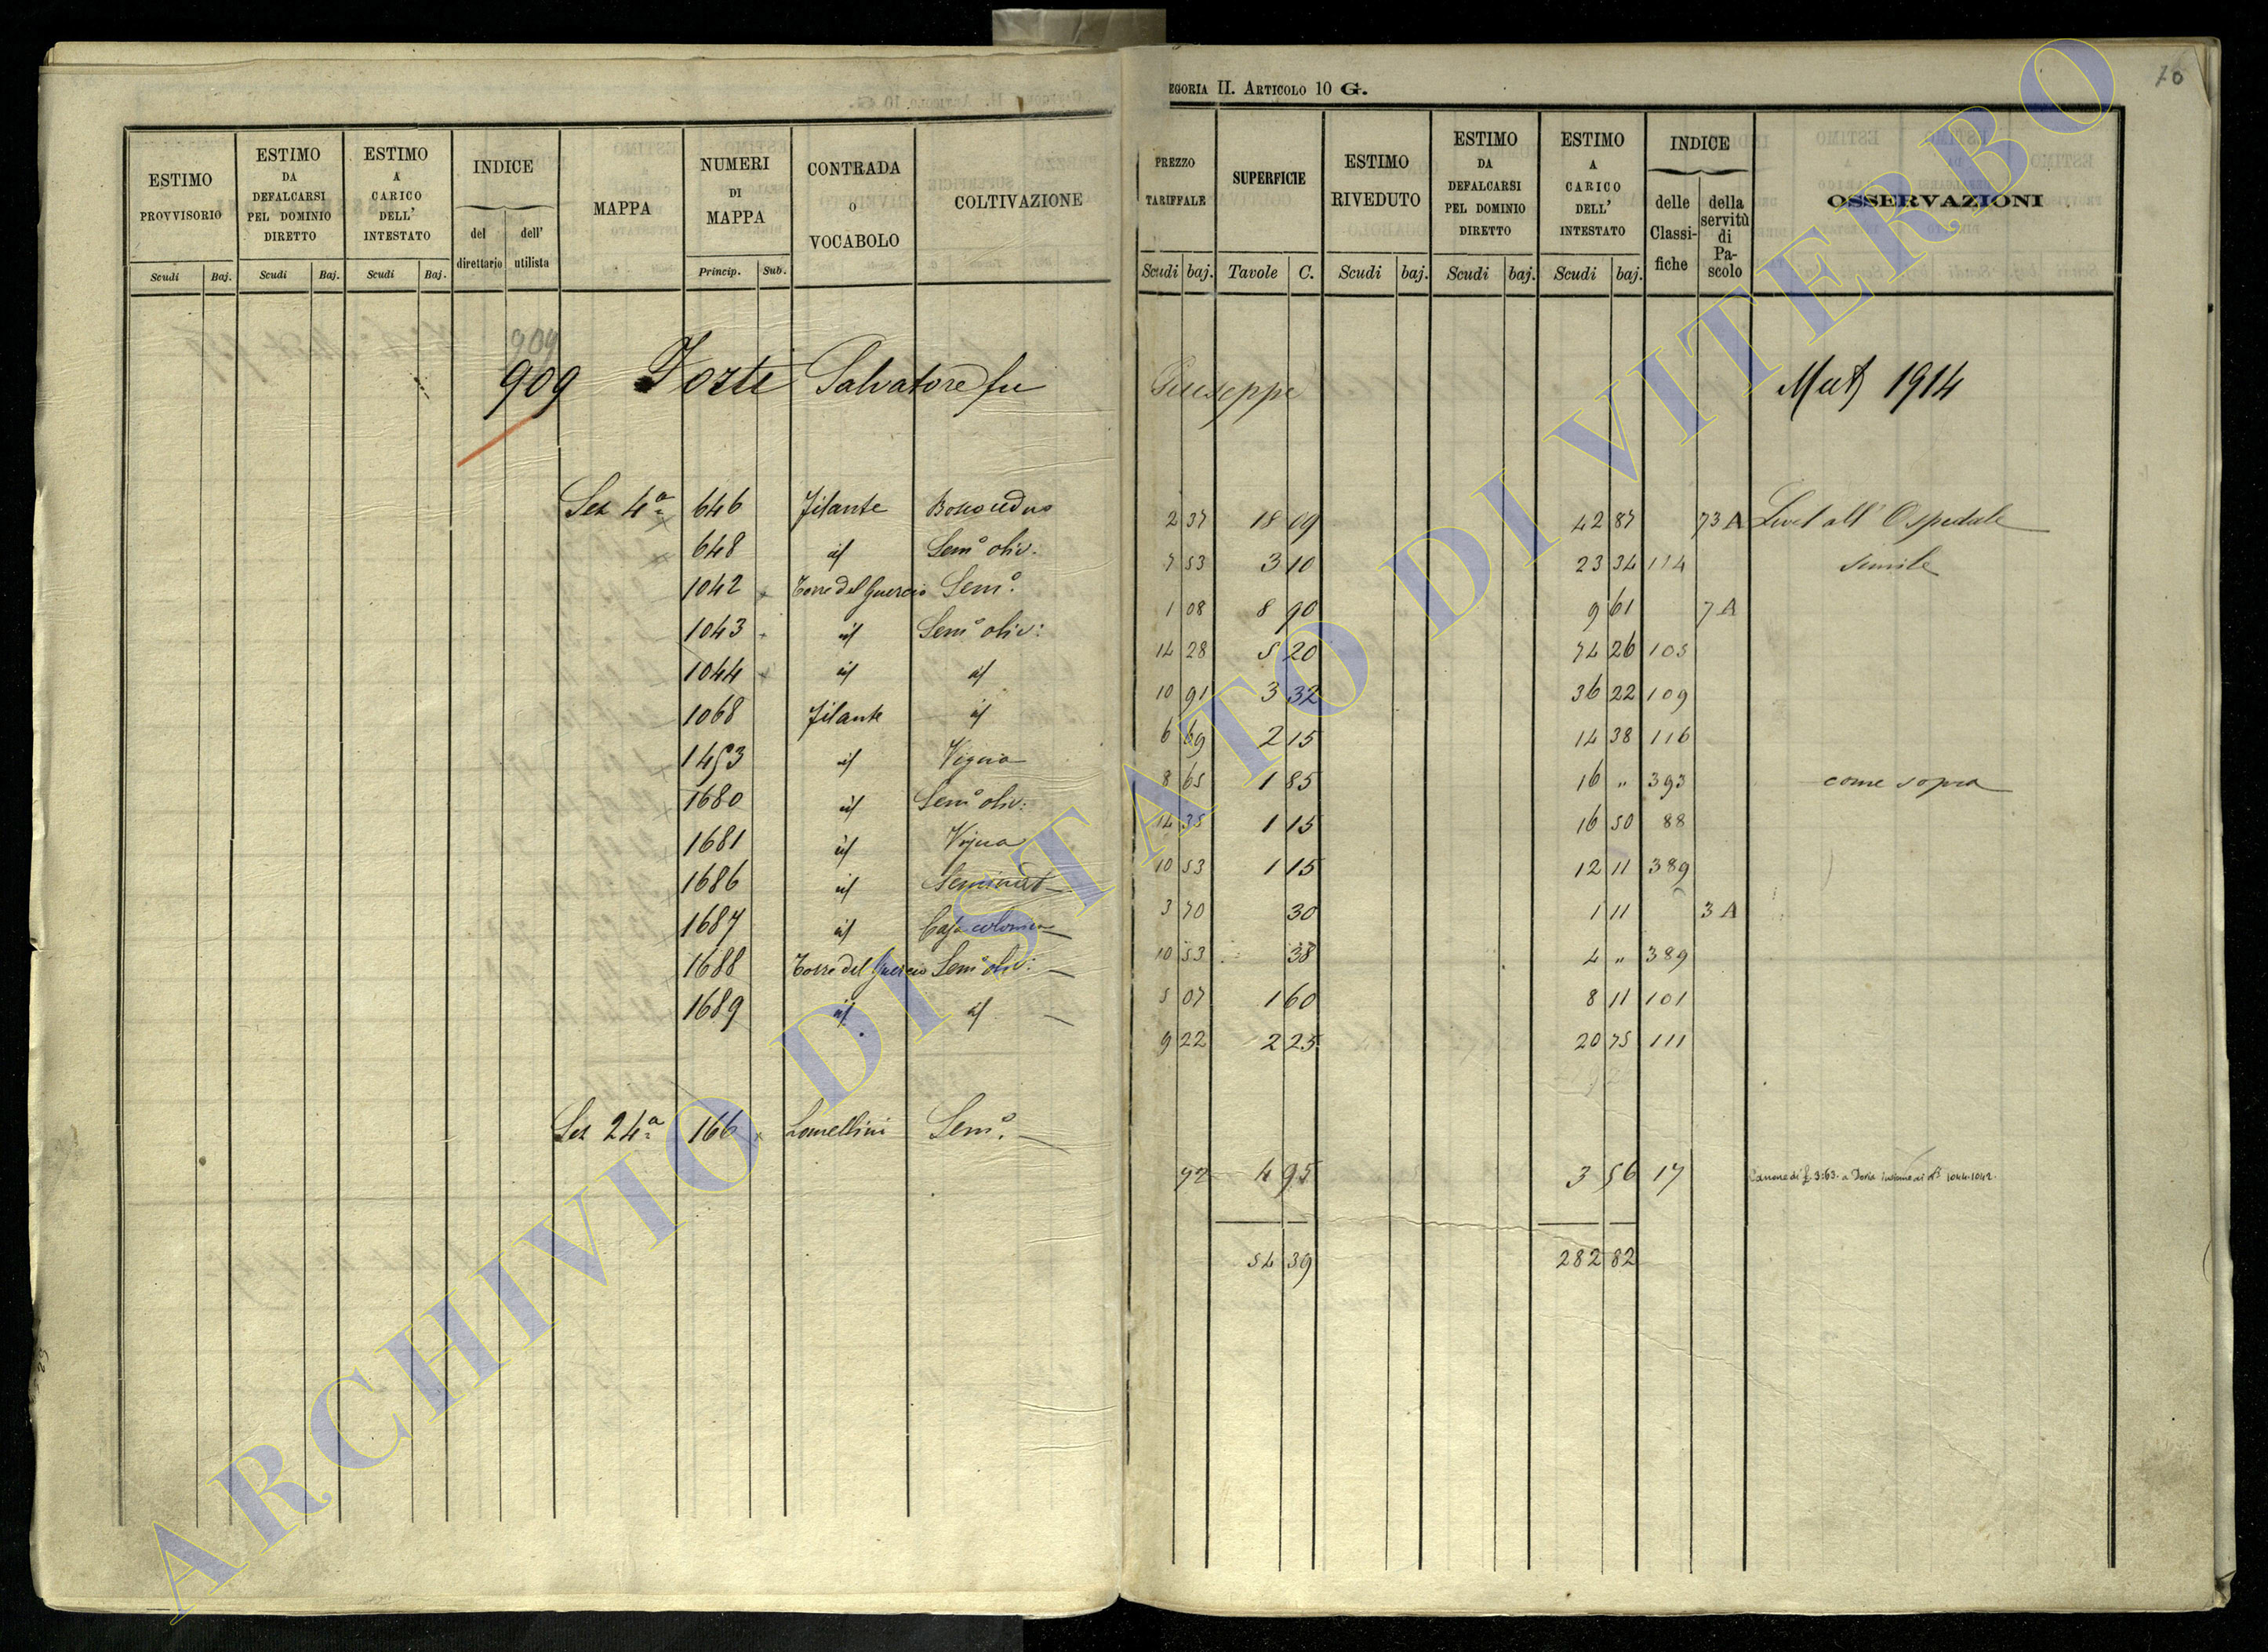 EGORIA II. ARTICOLO 10 G.
76
ESTIMO PROVVISORIO
ESTIMO DA DEFALCARSI PEL DOMINIO DIRETTO
ESTIMO A CARICO DELL' INTESTATO
INDICE
del direttario
dell' utilista
MAPPA
NUMERI DI MAPPA
CONTRADA O VOCABOLO
COLTIVAZIONE
PREZZO TARIFFALE
SUPERFICIE
ESTIMO RIVEDUTO
ESTIMO DA DEFALCARSI PEL DOMINIO DIRETTO
ESTIMO A CARICO DELL' INTESTATO
INDICE
delle Classi-fiche
della servitù di Pa-scolo
OSSERVAZIONI
Scudi Baj. Scudi Baj. Scudi Baj. Princip. Sub.
Scudi baj. Tavole C. Scudi baj. Scudi baj. Scudi baj.
909
909 Forti Salvatore fu Giuseppe Mut 1914
Sez 4ª 646 Filante Bosco ceduo 2 37 18 09 42 87 73 A Livel all' Ospedale
648 id Semº oliv: 7 53 3 10 23 34 114 simile
1042 Torre del Guercio Semº 1 08 8 90 9 61 7 A
1043 id Semº oliv: 14 28 5 20 74 26 105
1044 id id 10 91 3 32 36 22 109
1068 Filante id 6 69 2 15 14 38 116
1453 id Vigna 8 65 1 85 16 " 393 come sopra
1680 id Semº oliv: 14 35 1 15 16 50 88
1681 id Vigna 10 53 1 15 12 11 389
1686 id Seminat 3 70 30 1 11 3 A
1687 id Casa colonica 10 53 38 4 " 389
1688 Torre del Guercio Semº oliv: 5 07 1 60 8 11 101
1689 id id 9 22 2 25 20 75 111
Sez 24ª 166 Lomellini Semº 72 4 95 3 56 17 Canone di £. 3:63. a Doria insieme ai nⁱ 1044.1042.
54 39 282 82
ARCHIVIO DI STATO DI VITERBO